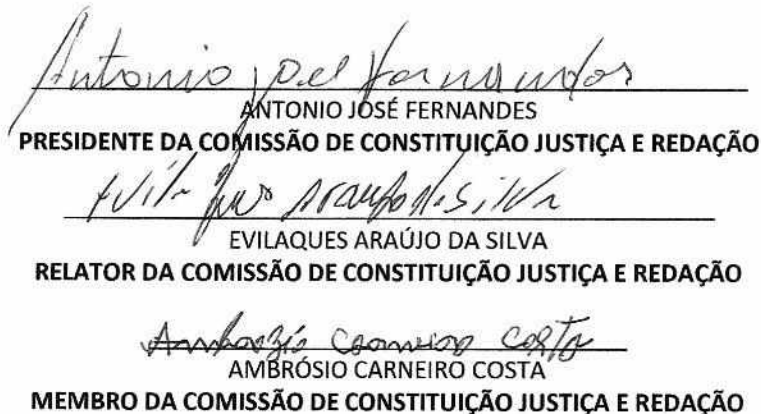 Antonio José Fernandes
ANTONIO JOSÉ FERNANDES
PRESIDENTE DA COMISSÃO DE CONSTITUIÇÃO JUSTIÇA E REDAÇÃO
Araujo da Silva
EVILAQUES ARAÚJO DA SILVA
RELATOR DA COMISSÃO DE CONSTITUIÇÃO JUSTIÇA E REDAÇÃO
Ambrozio Carneiro Costa
AMBRÓSIO CARNEIRO COSTA
MEMBRO DA COMISSÃO DE CONSTITUIÇÃO JUSTIÇA E REDAÇÃO